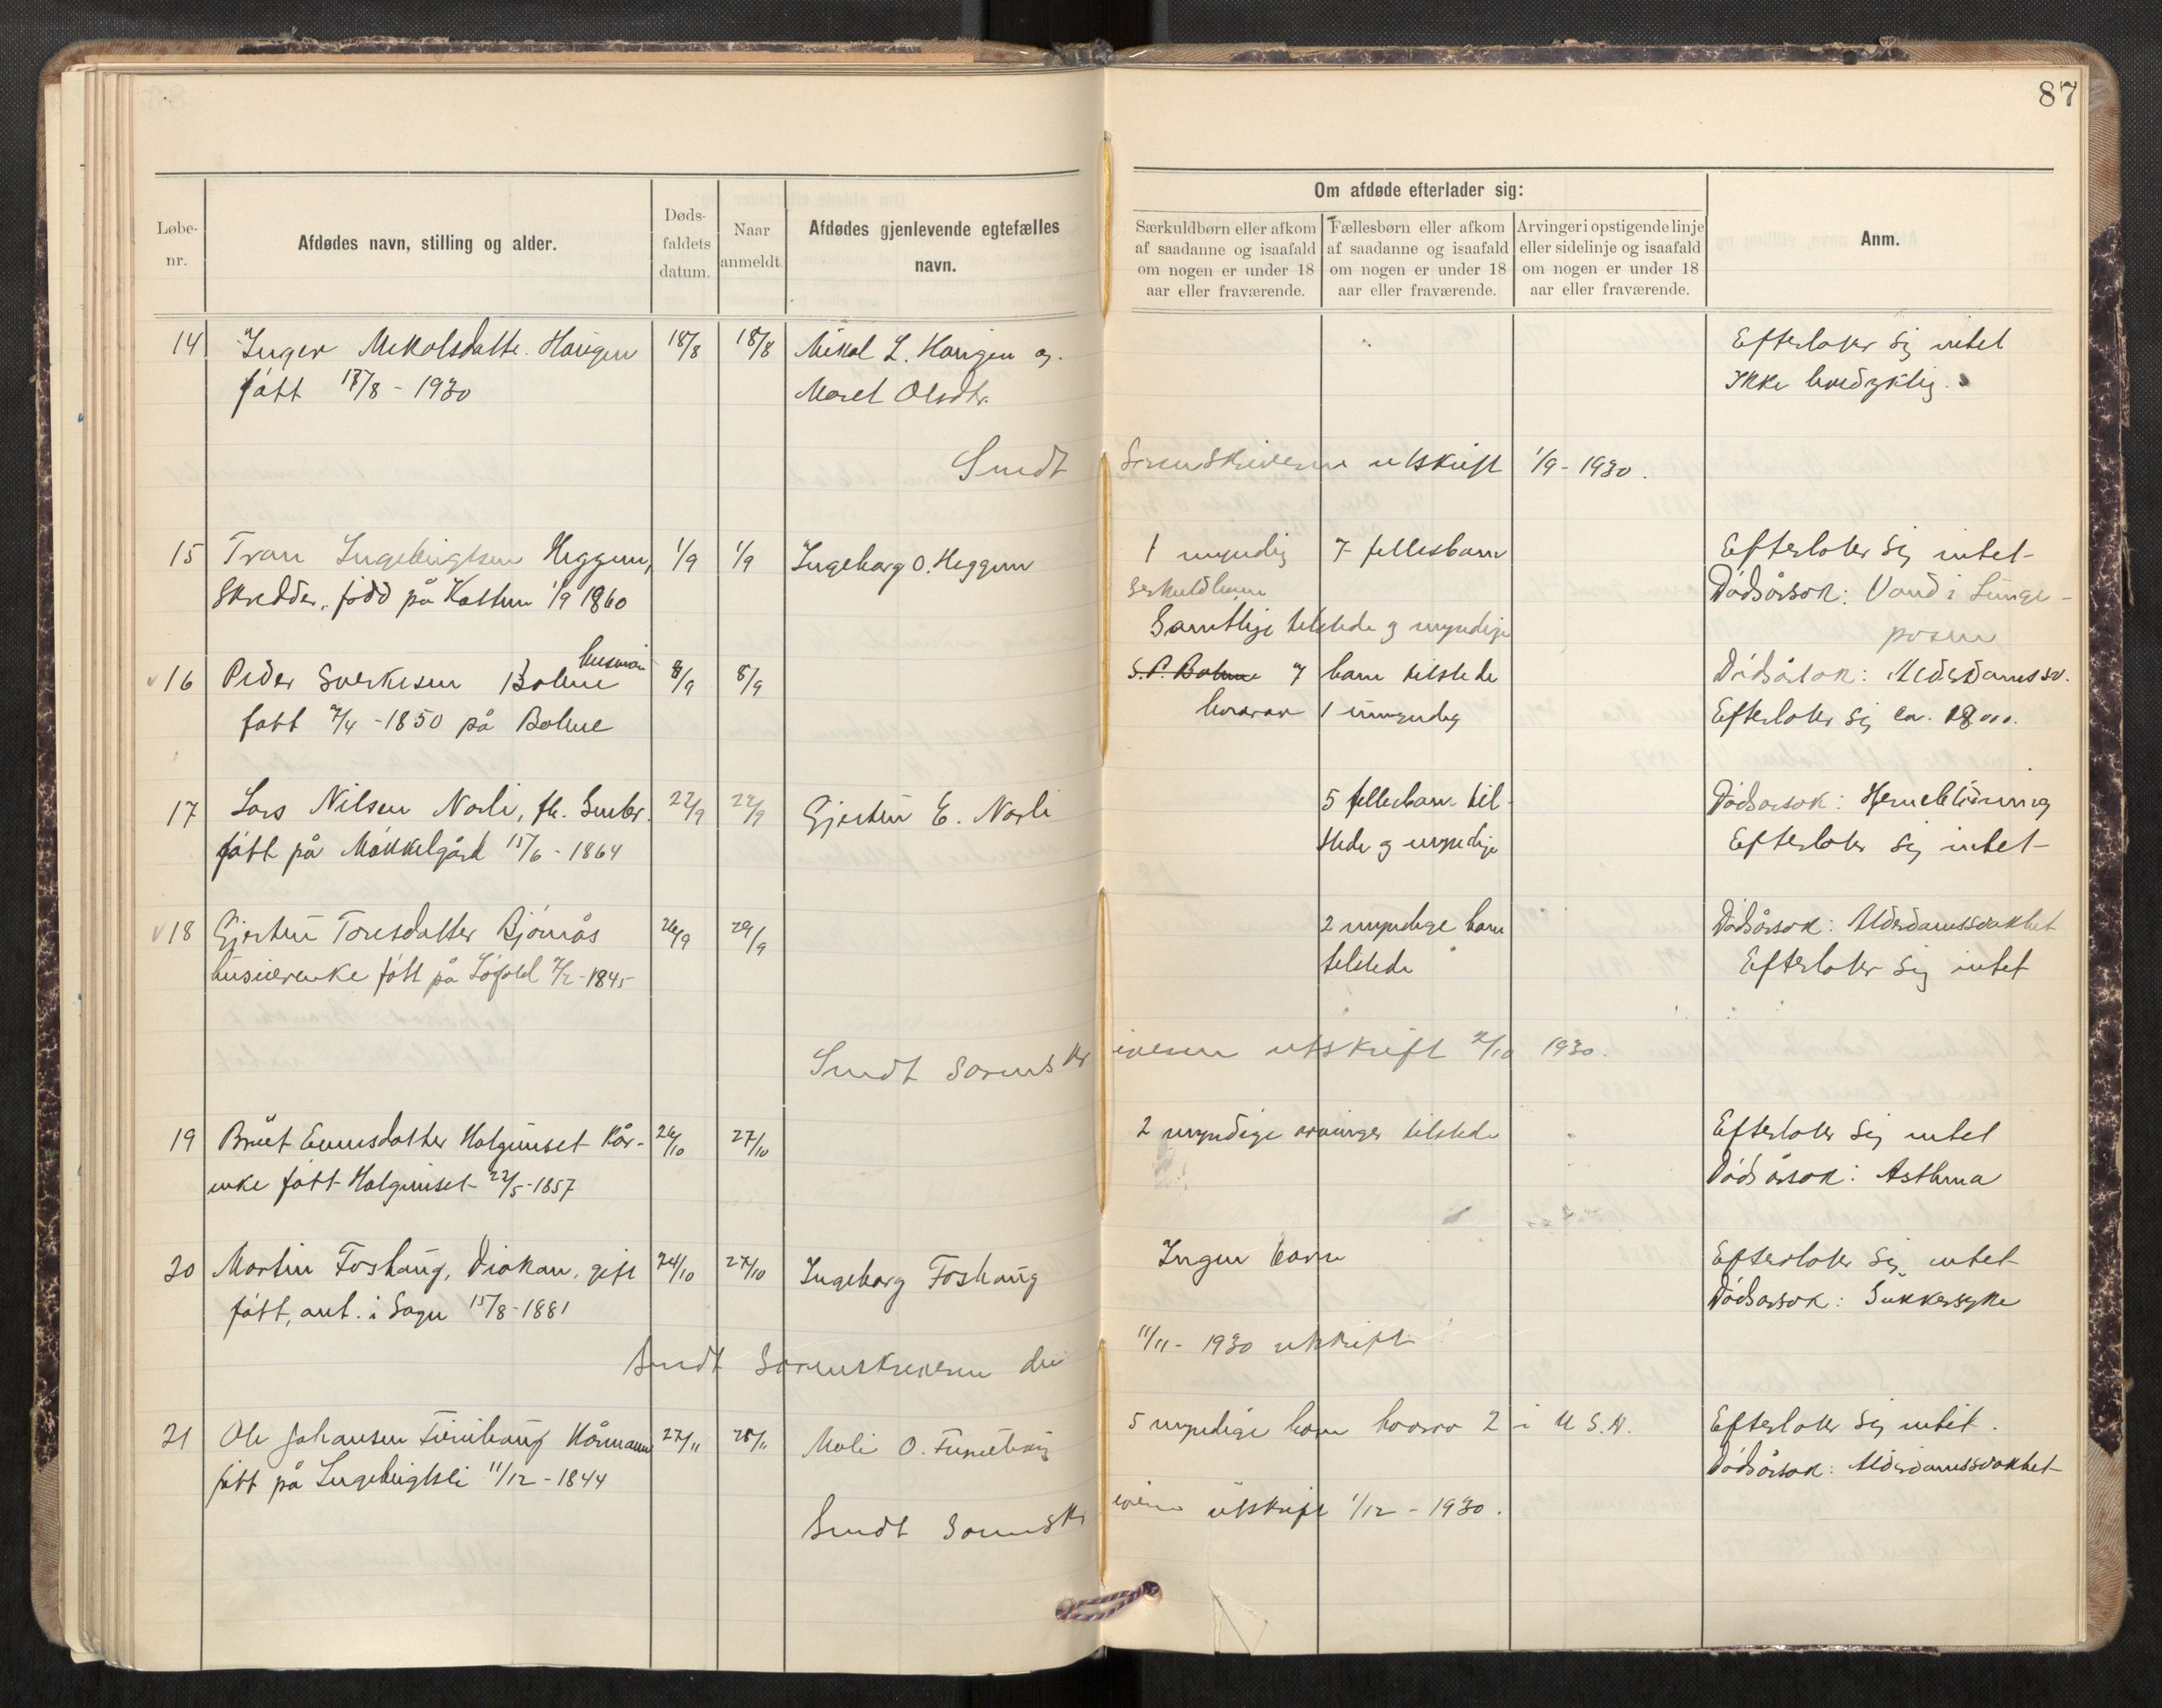 87
Løbe-
nr.
Afdødes navn, stilling og alder.
Døds-
faldets
datum.
Naar
anmeldt.
Afdødes gjenlevende egtefælles
navn.
Om afdøde efterlader sig:
Særkuldbørn eller afkom
af saadanne og isaafald
om nogen er under 18
aar eller fraværende.
Fællesbørn eller afkom
af saadanne og isaafald
om nogen er under 18
aar eller fraværende.
Arvinger i opstigende linje
eller sidelinje og isaafald
om nogen er under 18
aar eller fraværende.
Anm.
14 Inger Mikalsdatte. Haugen 18/8 18/8 Mikal L. Haugen og Efterlater sig intet
født 17/8 - 1930 Maret Olsdtr. Ikke
Sendt Sorenskriveren utskrift 1/9 - 1930.
15 Tron Ingebrigtsen Heggem, 1/9 1/9 Ingeborg O. Heggem 1 myndig 7 fellesbarn Efterlater sig intet-
Skredder, född på 1/9 1860 Serkuldbarn Dödsårsak: Vand i Lunge-
Samtlige tilstede og myndige posen
16 Peder Sverkesen Bolme husman 8/9 8/9 S. P. Bolme 7 barn tilstede Dödsårsak: Alderdomssv.
født 7/4 - 1850 på Bolme hvorav 1 umyndig Efterlater sig ca.
17 Lars Nilsen Norli, fh. 22/9 22/9 Gjertru E. Norli 5 fellesbarn til- Dödsarsak: Hjerneblödning
født på Mökkelgård 15/6 - 1864 stede og myndige Efterlater sig intet-
18 Gjertru Toresdatter Björnås 26/9 29/9 2 myndige barn Dödsårsak: Alderdomssvakhet
født på 7/2 - 1845 tilstede Efterlater sig intet
Sendt Sorenskriveren utskrift 2/10 1930.
19 Brüt Evensdatter Halgunset Kår- 26/10 27/10 2 myndige arvinger tilstede Efterlater sig intet
enke født Halgunset 22/5 - 1857 Dödsårsak: Asthma
20 Martin Foshaug, Diakon, gift 24/10 27/10 Ingeborg Foshaug Ingen barn Efterlater sig intet
født, ant. i Sogn 15/8 - 1881 Dödsarsak: Sukkersyke
Sendt Sorenskriveren den 11/11 - 1930 utskrift
21 Ole Johansen Kårmann 27/11 28/11 Mali O. 5 myndige barn hvorav 2 i U S. A. Efterlater sig intet.
født på Ingebrigtsli 11/12 - 1844 Dödsårsak: Alderdomssvakhet
Sendt Sorenskriveren utskrift 1/12 - 1930.